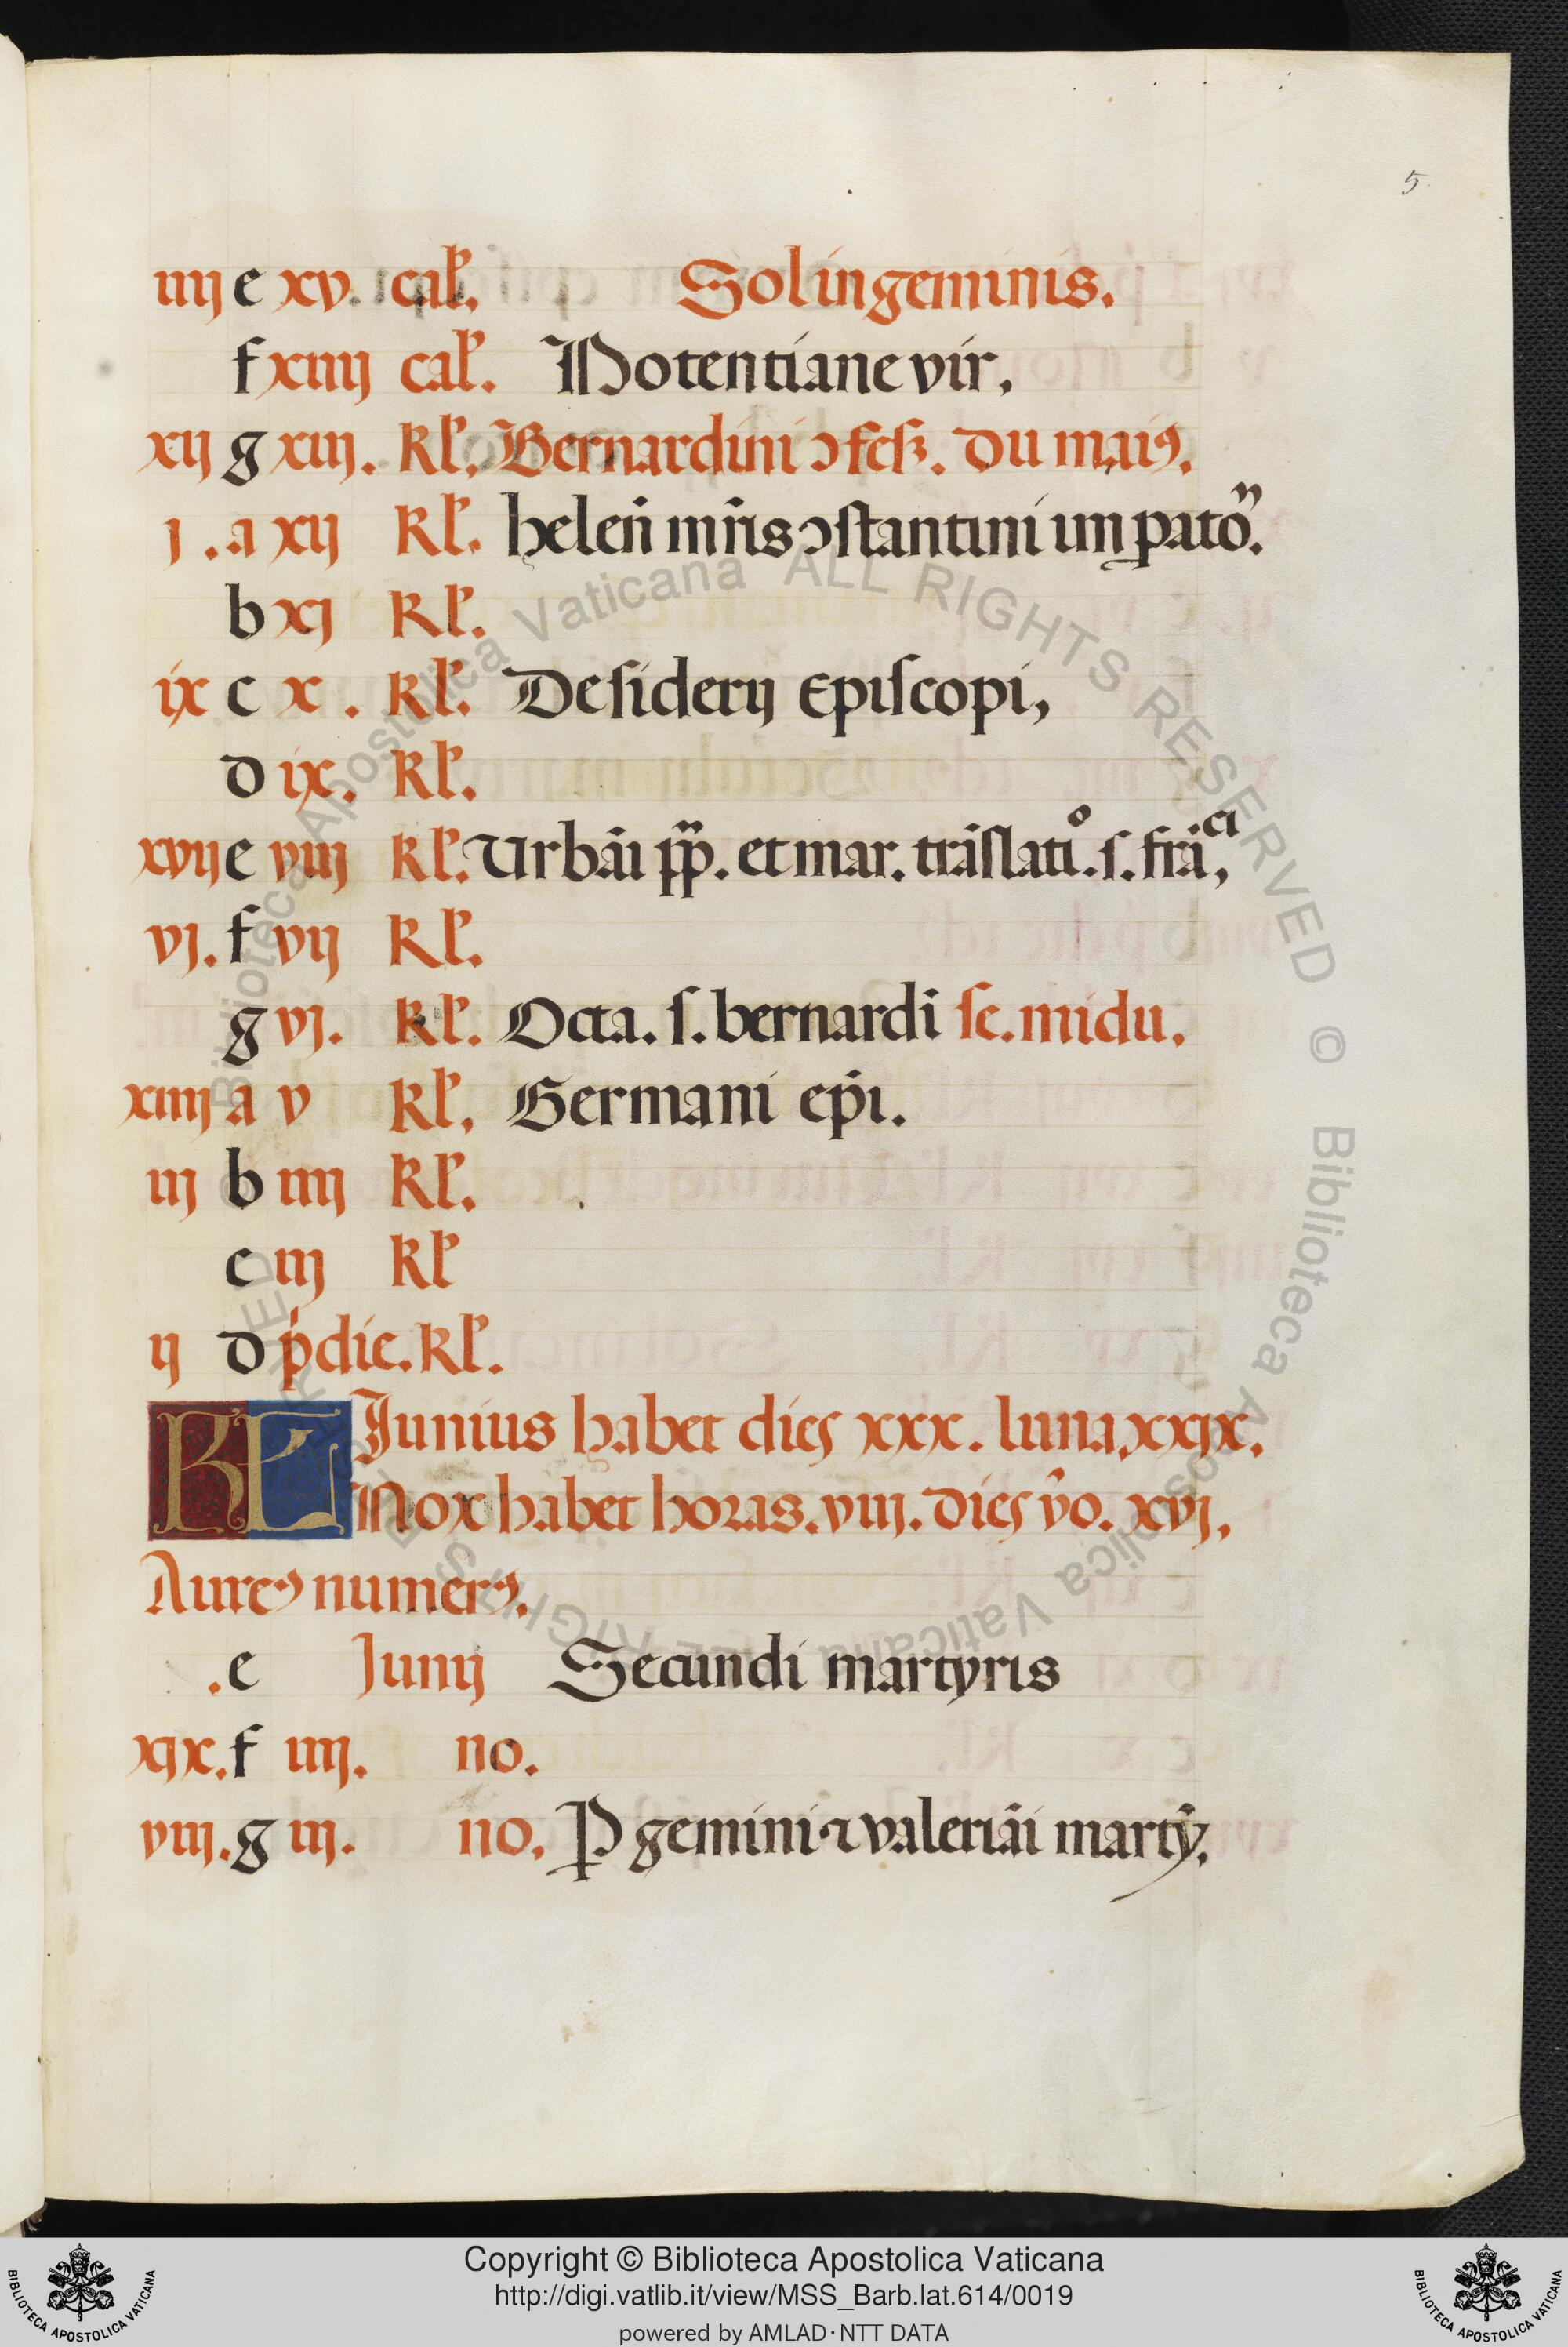 5
iiij e xv. cal̃. Sol in geminis.
f xiiij cal̃. Potentiane vir.
xij g xiij. kl̃. Bernardini ↄfeſẜ. du maiꝰ.
j . a xij kl̃. heleñ mr̃is ↄſtantini imꝑatoꝝ̃.
b xj kl̃.
ix c x . kl̃. Deſiderij Epiſcopi,
d ix. kl̃.
xvij e viij kl̃. Urbãi pp̃. et mar. trãſlatiᵒ. ſ. frãᶜⁱ,
vj. f vij kl̃.
g vj. kl̃. Octa. ſ. bernardi ſe. midu.
xiiij a v kl̃. Germani ep̃i.
iij b iiij kl̃.
c iij kl̃
ij d p̃die. kl̃.
KL Junius habet dies xxx. luna xxix.
Nox habet horas. viij. dies v̊o. xvj.
Aureꝰ numerꝰ.
. e Junij Secundi martyris
xix. f iiij. no.
viij. g iij. no. P gemini. ⁊ valeriãi martỹ.
Biblioteca Apostolica Vaticana ALL RIGHTS RESERVED © Biblioteca Apostolica Vaticana ALL RIGHTS RESERVED
Copyright © Biblioteca Apostolica Vaticana
http://digi.vatlib.it/view/MSS_Barb.lat.614/0019
powered by AMLAD·NTT DATA
BIBLIOTECA APOSTOLICA VATICANA
BIBLIOTECA APOSTOLICA VATICANA